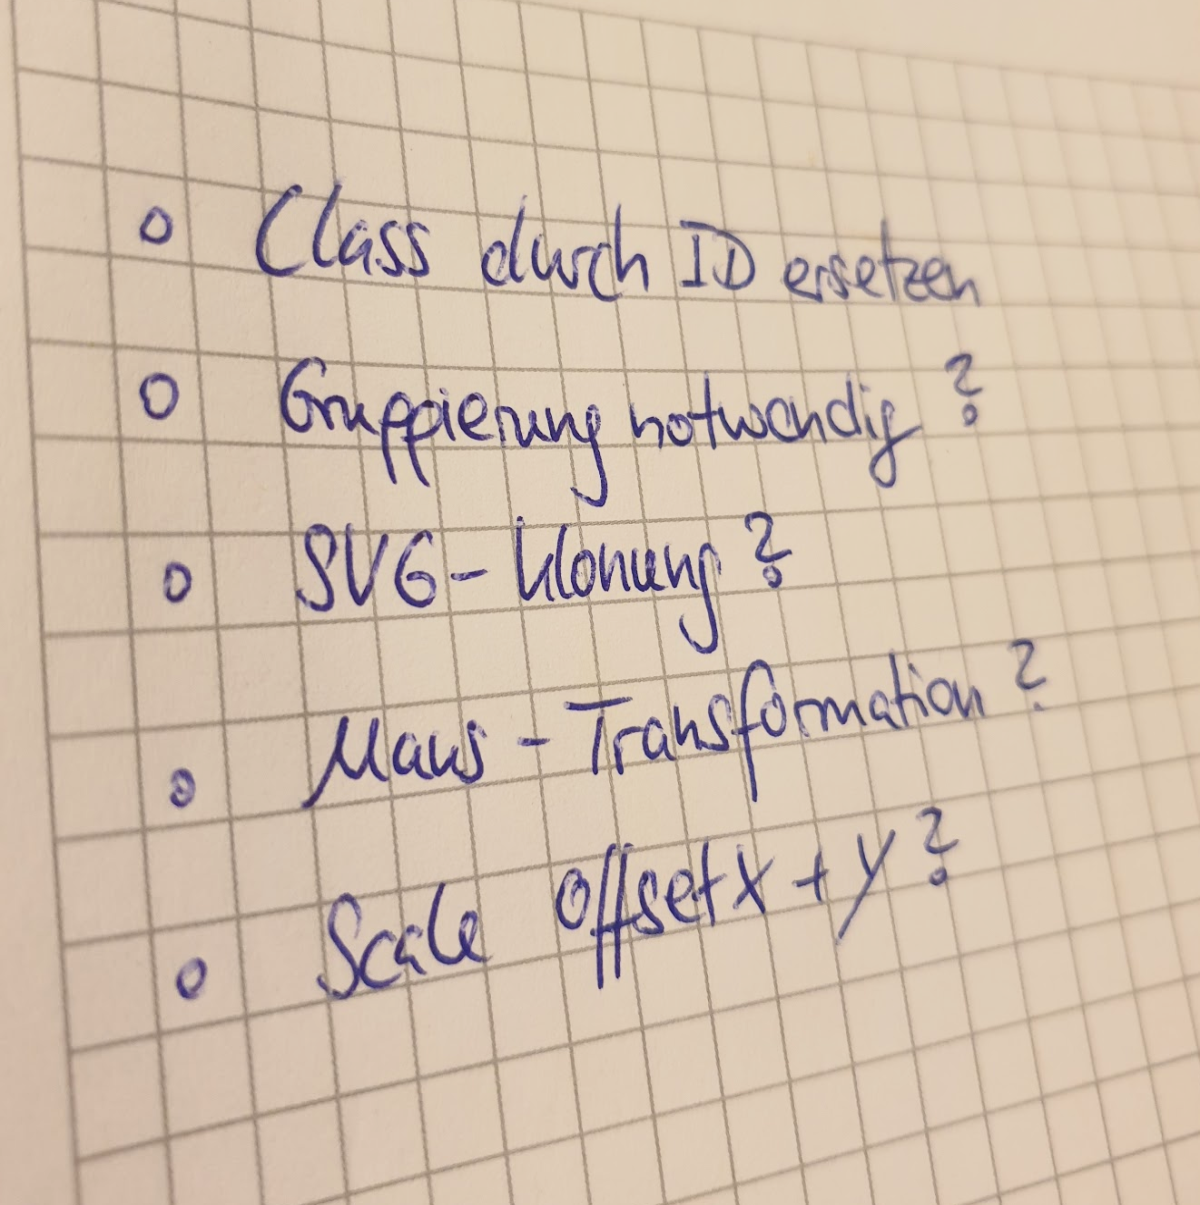 o Class durch ID ersetzen
o Gruppierung notwendig?
o SVG-Klonung?
o Maus-Transformation?
o Scale offsetX + Y?